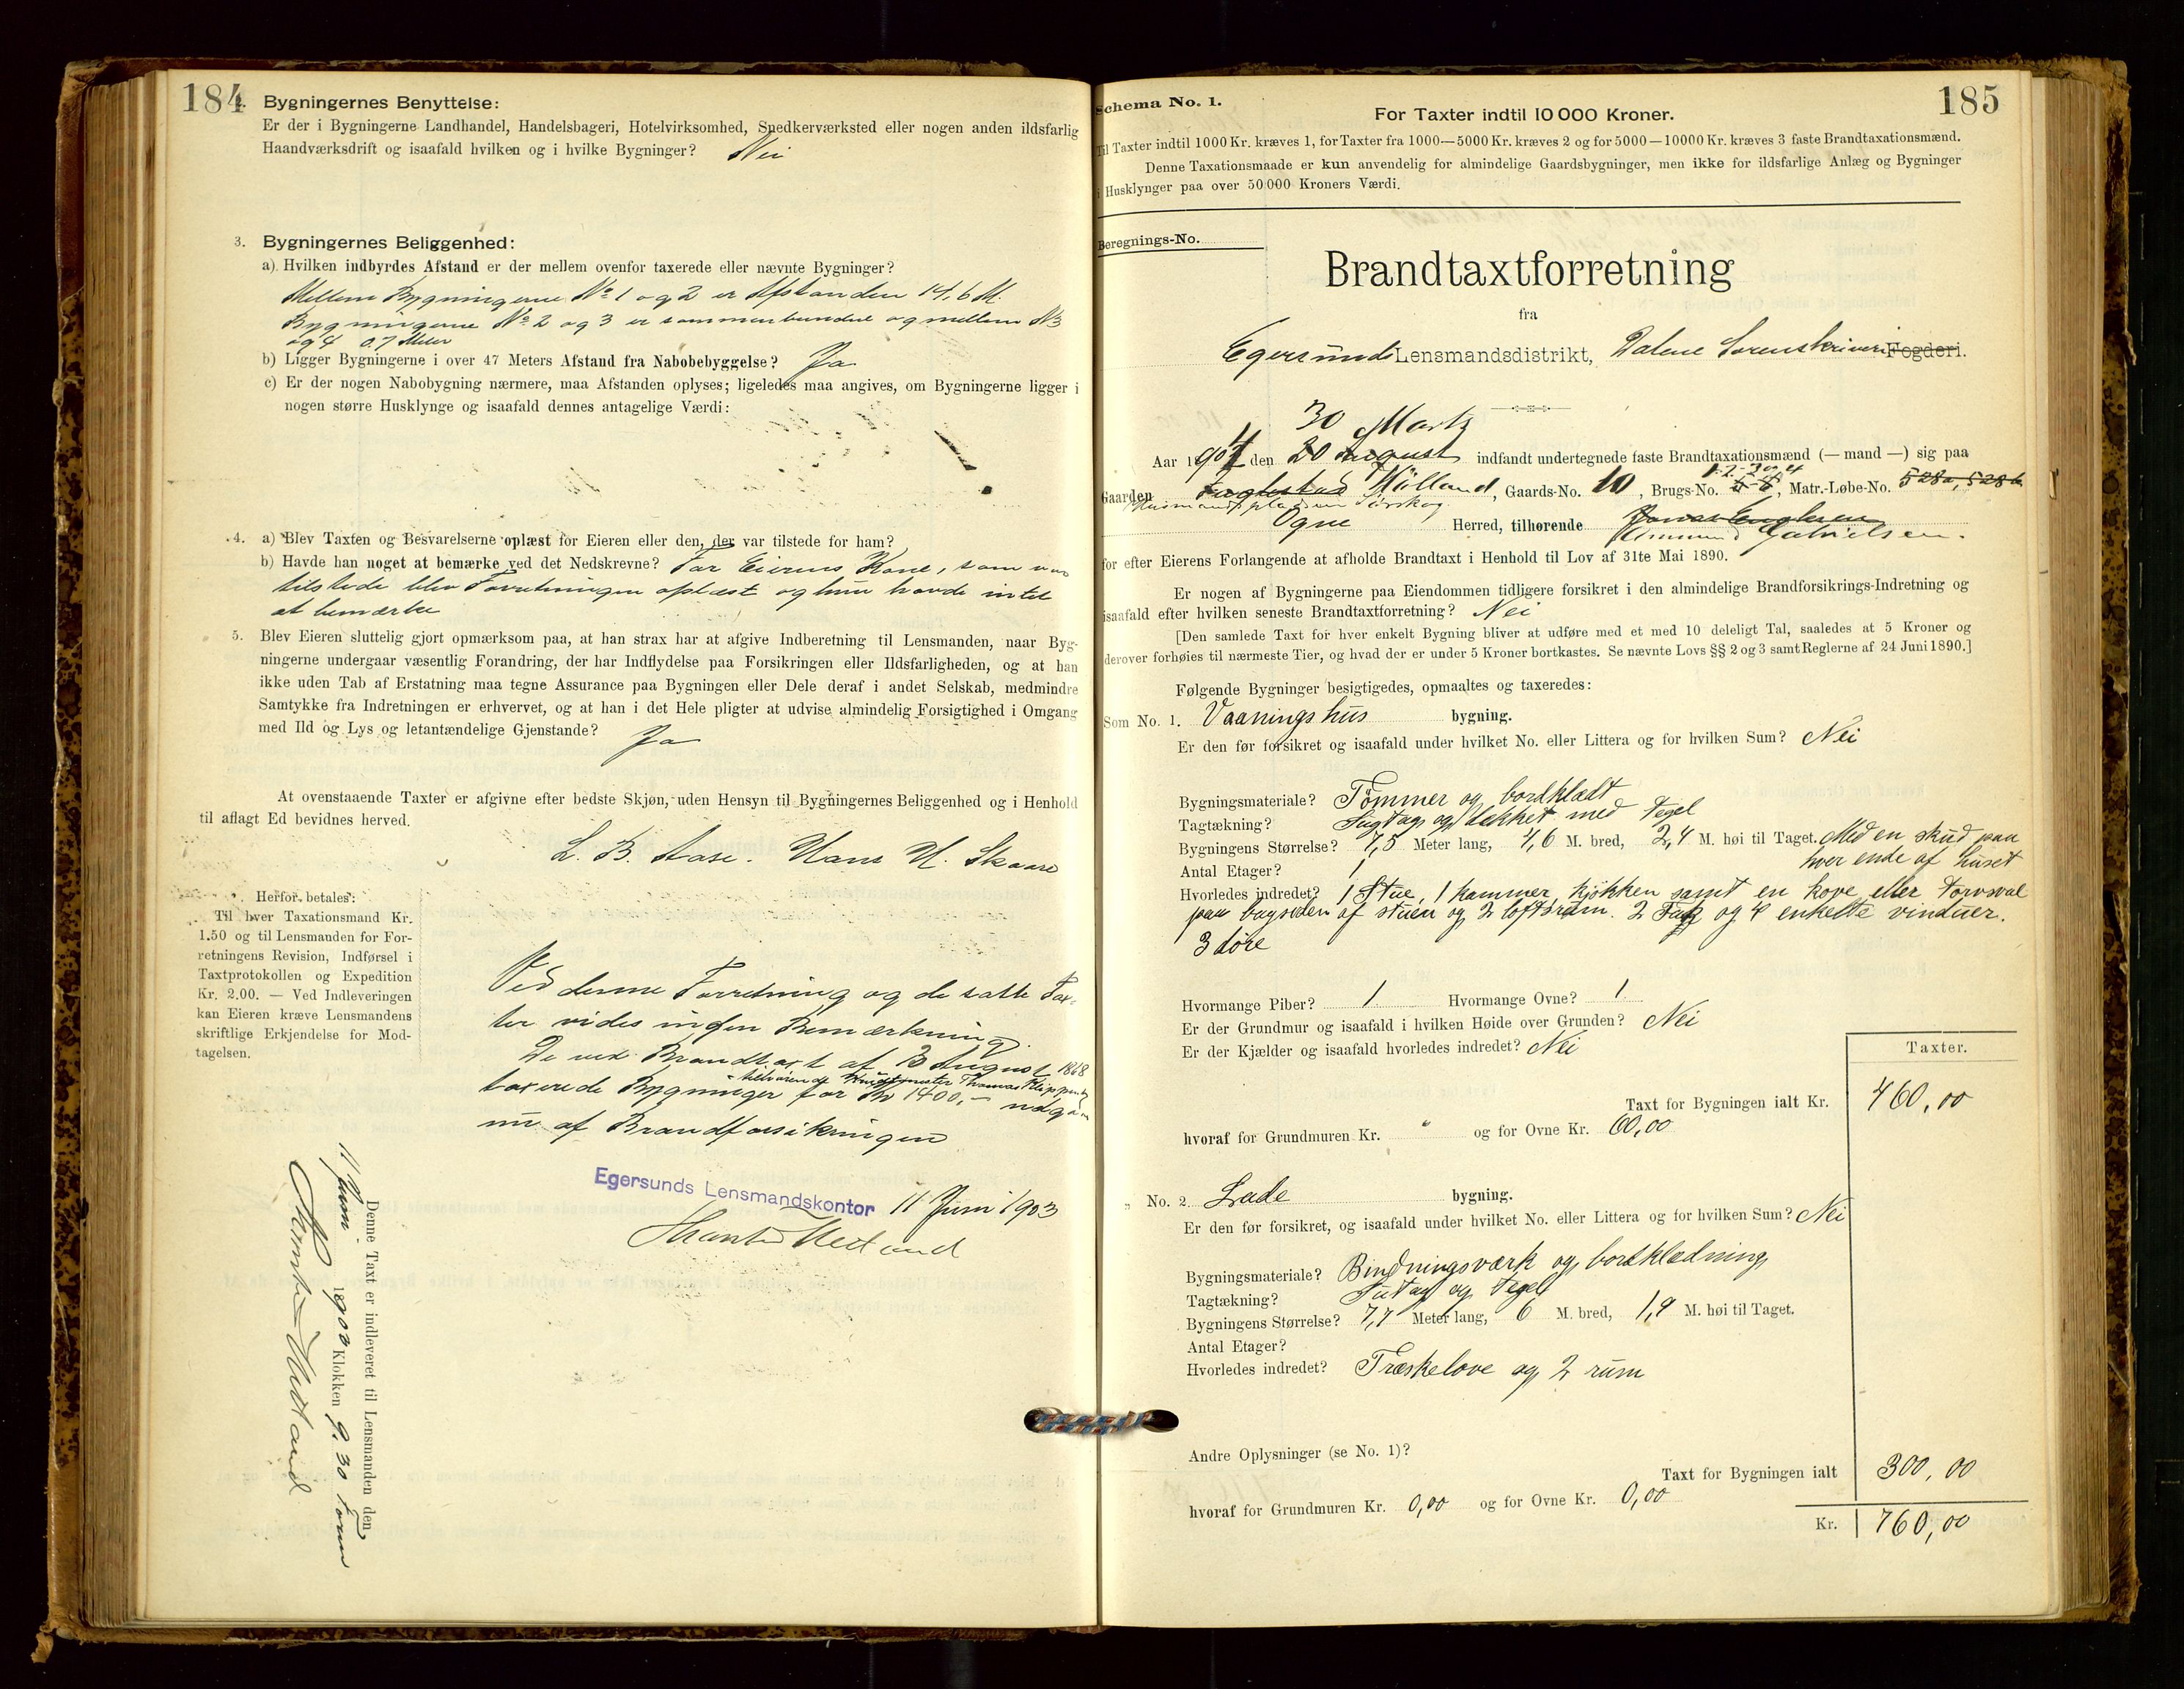 184
Bygningernes Benyttelse:
Er der i Bygningerne Landhandel, Handelsbageri, Hotelvirksomhed, Snedkerværksted eller nogen anden ildsfarlig
Haandværksdrift og isaafald hvilken og i hvilke Bygninger? Nei
3. Bygningernes Beliggenhed:
a) Hvilken indbyrdes Afstand er der mellem ovenfor taxerede eller nævnte Bygninger?
Mellem Bygningerne No 1 og 2 er Afstanden 14,6 M.
Bygningerne No 2 og 3 er sammenbundne og mellem No 3
og 4 0.7 Meter
b) Ligger Bygningerne i over 47 Meters Afstand fra Nabobebyggelse? Ja
c) Er der nogen Nabobygning nærmere, maa Afstanden oplyses; ligeledes maa angives, om Bygningerne ligger i
nogen større Husklynge og isaafald dennes antagelige Værdi:
4. a) Blev Taxten og Besvarelserne oplæst for Eieren eller den, der var tilstede for ham?
b) Havde han noget at bemærke ved det Nedskrevne? For Eierens Kone, som var
tilstede blev Forretningen oplæst og hun havde intet
at bemærke
5. Blev Eieren sluttelig gjort opmærksom paa, at han strax har at afgive Indberetning til Lensmanden, naar Byg-
ningerne undergaar væsentlig Forandring, der har Indflydelse paa Forsikringen eller Ildsfarligheden, og at han
ikke uden Tab af Erstatning maa tegne Assurance paa Bygningen eller Dele deraf i andet Selskab, medmindre
Samtykke fra Indretningen er erhvervet, og at han i det Hele pligter at udvise almindelig Forsigtighed i Omgang
med Ild og Lys og letantændelige Gjenstande? Ja
At ovenstaaende Taxter er afgivne efter bedste Skjøn, uden Hensyn til Bygningernes Beliggenhed og i Henhold
til aflagt Ed bevidnes herved.
L. B. Aase. Hans H. Skaare
Herfor betales:
Til hver Taxationsmand Kr.
1.50 og til Lensmanden for For-
retningens Revision, Indførsel i
Taxtprotokollen og Expedition
Kr. 2.00. — Ved Indleveringen
kan Eieren kræve Lensmandens
skriftlige Erkjendelse for Mod-
tagelsen.
Ved denne Forretning og de satte Tax-
ter vides ingen Bemærkning.
De ved Brandtaxt af 3 August 1868
tilhørende Thomas
taxerede Bygninger for Kr 1400,- udgaar
nu af Brandforsikringen
Egersunds Lensmandskontor 11 Juni 1903
Denne Taxt er indleveret til Lensmanden den
11 Juni 1902 Klokken 9.30 Form
185
Schema No. 1.
For Taxter indtil 10 000 Kroner.
Til Taxter indtil 1000 Kr. kræves 1, for Taxter fra 1000—5000 Kr. kræves 2 og for 5000—10000 Kr. kræves 3 faste Brandtaxationsmænd.
Denne Taxationsmaade er kun anvendelig for almindelige Gaardsbygninger, men ikke for ildsfarlige Anlæg og Bygninger
i Husklynger paa over 50 000 Kroners Værdi.
Beregnings-No.
Brandtaxtforretning
fra
Egersunds Lensmandsdistrikt, Dalene Sorenskriveri Fogderi.
30 Marts
Aar 1904 den 20 August indfandt undertegnede faste Brandtaxationsmænd (— mand —) sig paa
Gaarden Fuglestad Hølland, Gaards-No. 10, Brugs-No. , Matr.-Løbe-No. 528a, 528b
Husmandspladsen
Ogne Herred, tilhørende
Gabrielsen.
for efter Eierens Forlangende at afholde Brandtaxt i Henhold til Lov af 31te Mai 1890.
Er nogen af Bygningerne paa Eiendommen tidligere forsikret i den almindelige Brandforsikrings-Indretning og
isaafald efter hvilken seneste Brandtaxtforretning? Nei
[Den samlede Taxt for hver enkelt Bygning bliver at udføre med et med 10 deleligt Tal, saaledes at 5 Kroner og
derover forhøies til nærmeste Tier, og hvad der er under 5 Kroner bortkastes. Se nævnte Lovs §§ 2 og 3 samt Reglerne af 24 Juni 1890.]
Følgende Bygninger besigtigedes, opmaaltes og taxeredes:
Som No. 1. Vaaningshus bygning.
Er den før forsikret og isaafald under hvilket No. eller Littera og for hvilken Sum? Nei
Bygningsmateriale? Tømmer og bordklædt
Tagtækning? Sugtag og tækket med Tegel
Bygningens Størrelse? 7,5 Meter lang, 4,6 M. bred, 2,4 M. høi til Taget. Med en skud paa
hver ende af huset
Antal Etager? 1
Hvorledes indredet? 1 Stue, 1 kammer, kjøkken samt en kove eller Torvsval
paa bagsiden af stuen og 2 loftsrum. 2 Fag og 4 enkelte vinduer.
3 døre
Hvormange Piber? 1 Hvormange Ovne? 1
Er der Grundmur og isaafald i hvilken Høide over Grunden? Nei
Er der Kjælder og isaafald hvorledes indredet? Nei
Taxter.
Taxt for Bygningen ialt Kr. 460,00
hvoraf for Grundmuren Kr. " og for Ovne Kr. 60,00
„ No. 2. Lade bygning.
Er den før forsikret, og isaafald under hvilket No. eller Littera og for hvilken Sum? Nei
Bygningsmateriale? Bindningsværk og bordklædning
Tagtækning? Sutag og Tegel
Bygningens Størrelse? 7,7 Meter lang, 6 M. bred, 1,9 M. høi til Taget.
Antal Etager?
Hvorledes indredet? Træskelove og 2 rum
Andre Oplysninger (se No. 1)?
Taxt for Bygningen ialt 300,00
hvoraf for Grundmuren Kr. 0,00 og for Ovne Kr. 0,00
Kr. 760,00